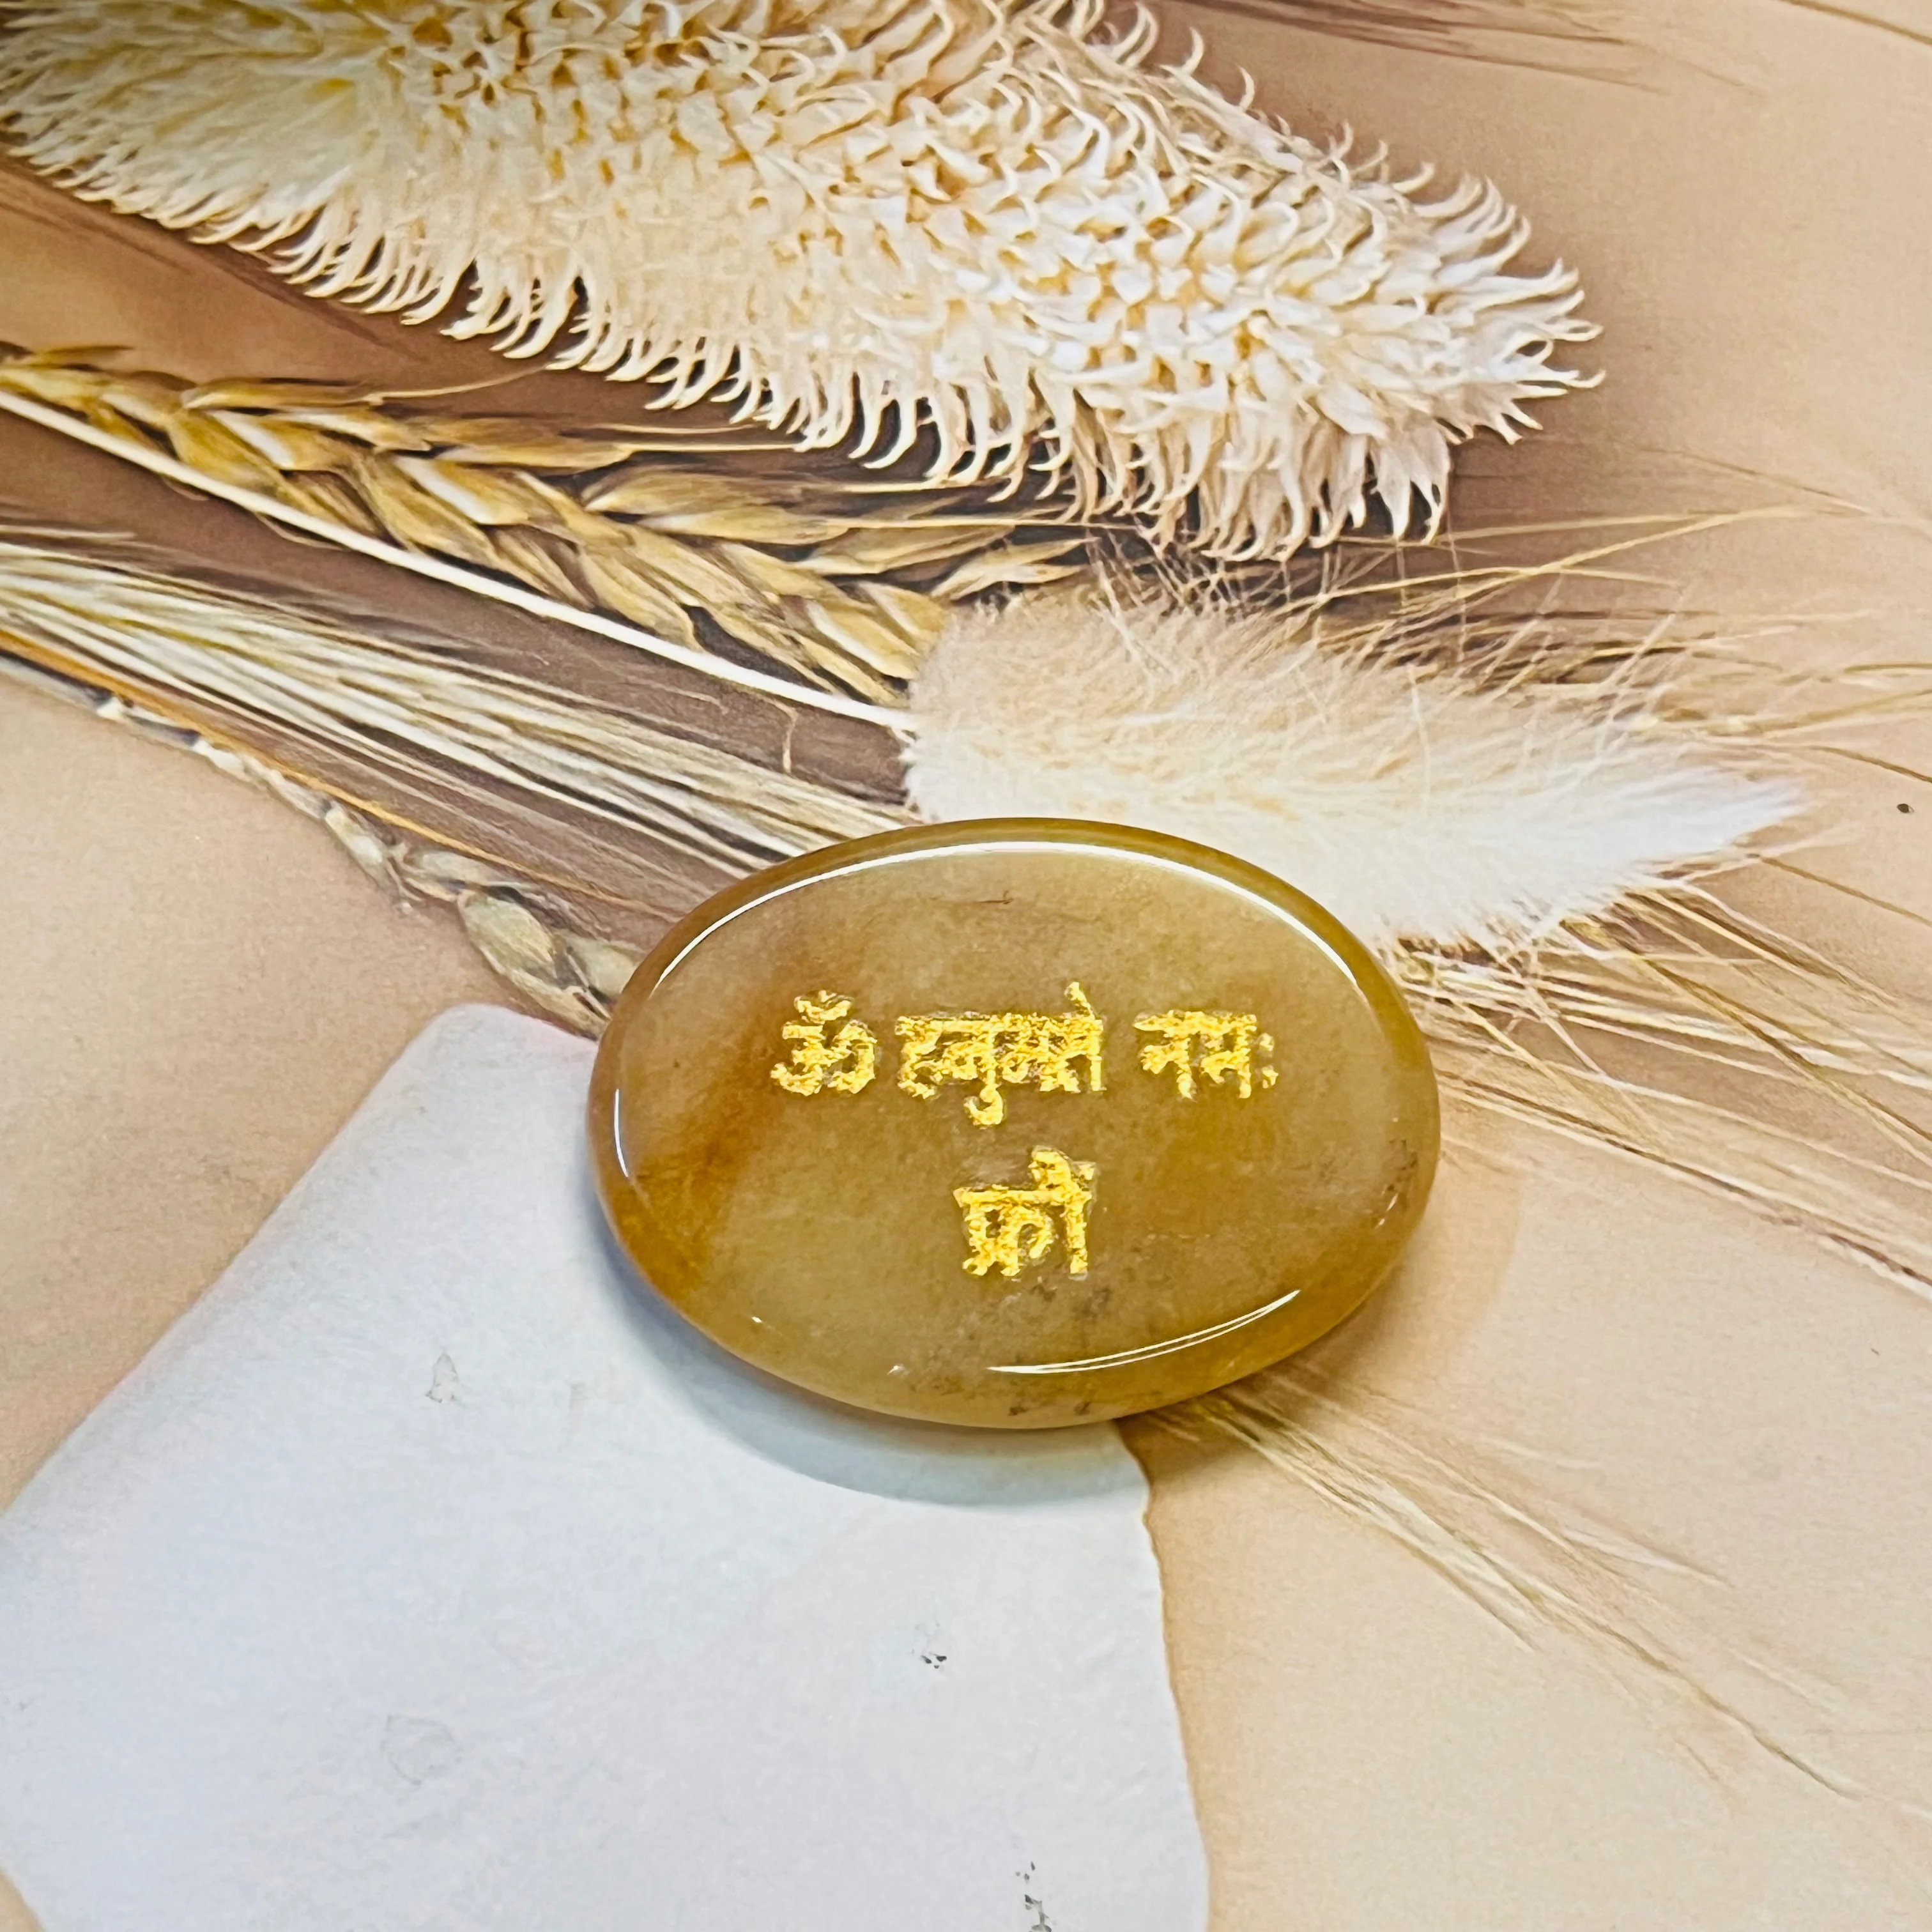 ॐ हनुमते नमः
फ्रौं